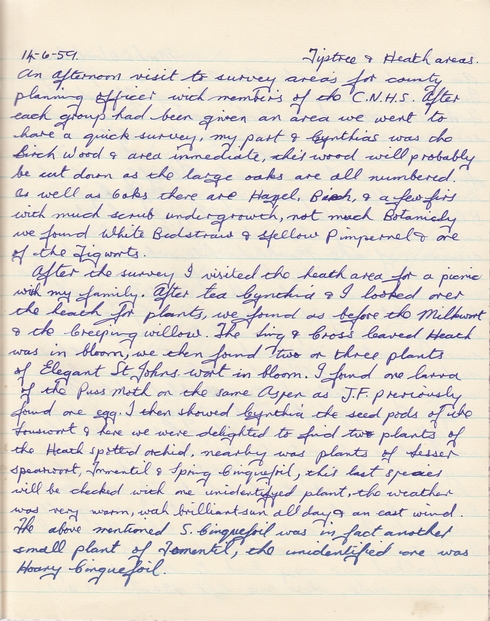 14-6-59. Tiptree & Heath areas.
An afternoon visit to survey areas for county
planning officer with members of the C.N.H.S. After
each group had been given an area we went to
have a quick survey, my part & Cynthias was the
Birch Wood & area immediate, this wood will probably
be cut down as the large oaks are all numbered.
As well as Oaks there are Hazel, Birch, & a few firs
with much scrub undergrowth, not much Botanicly
we found White Bedstraw & Yellow Pimpernel & one
of the Figworts.
After the survey I visited the heath area for a picnic
with my family. After tea Cynthia & I looked over
the heath for plants, we found as before the Milkwort
& the Creeping willow. The Ling & Cross leaved Heath
was in bloom, we then found two or three plants
of Elegant St Johns wort in bloom. I found one larva
of the Puss Moth on the same Aspen as J.F. previously
found one egg. I then showed Cynthia the seed pods of the
& here we were delighted to find two plants of
the Heath spotted orchid, nearby was plants of Lesser
spearwort, Tormentil & Spring Cinquefoil, this last species
will be checked with one unidentifyed plant, the weather
was very warm, with brilliant sun all day & an east wind.
The above mentioned S. Cinquefoil was in fact another
small plant of Tomentil, the unidentified one was
Hoary Cinquefoil.